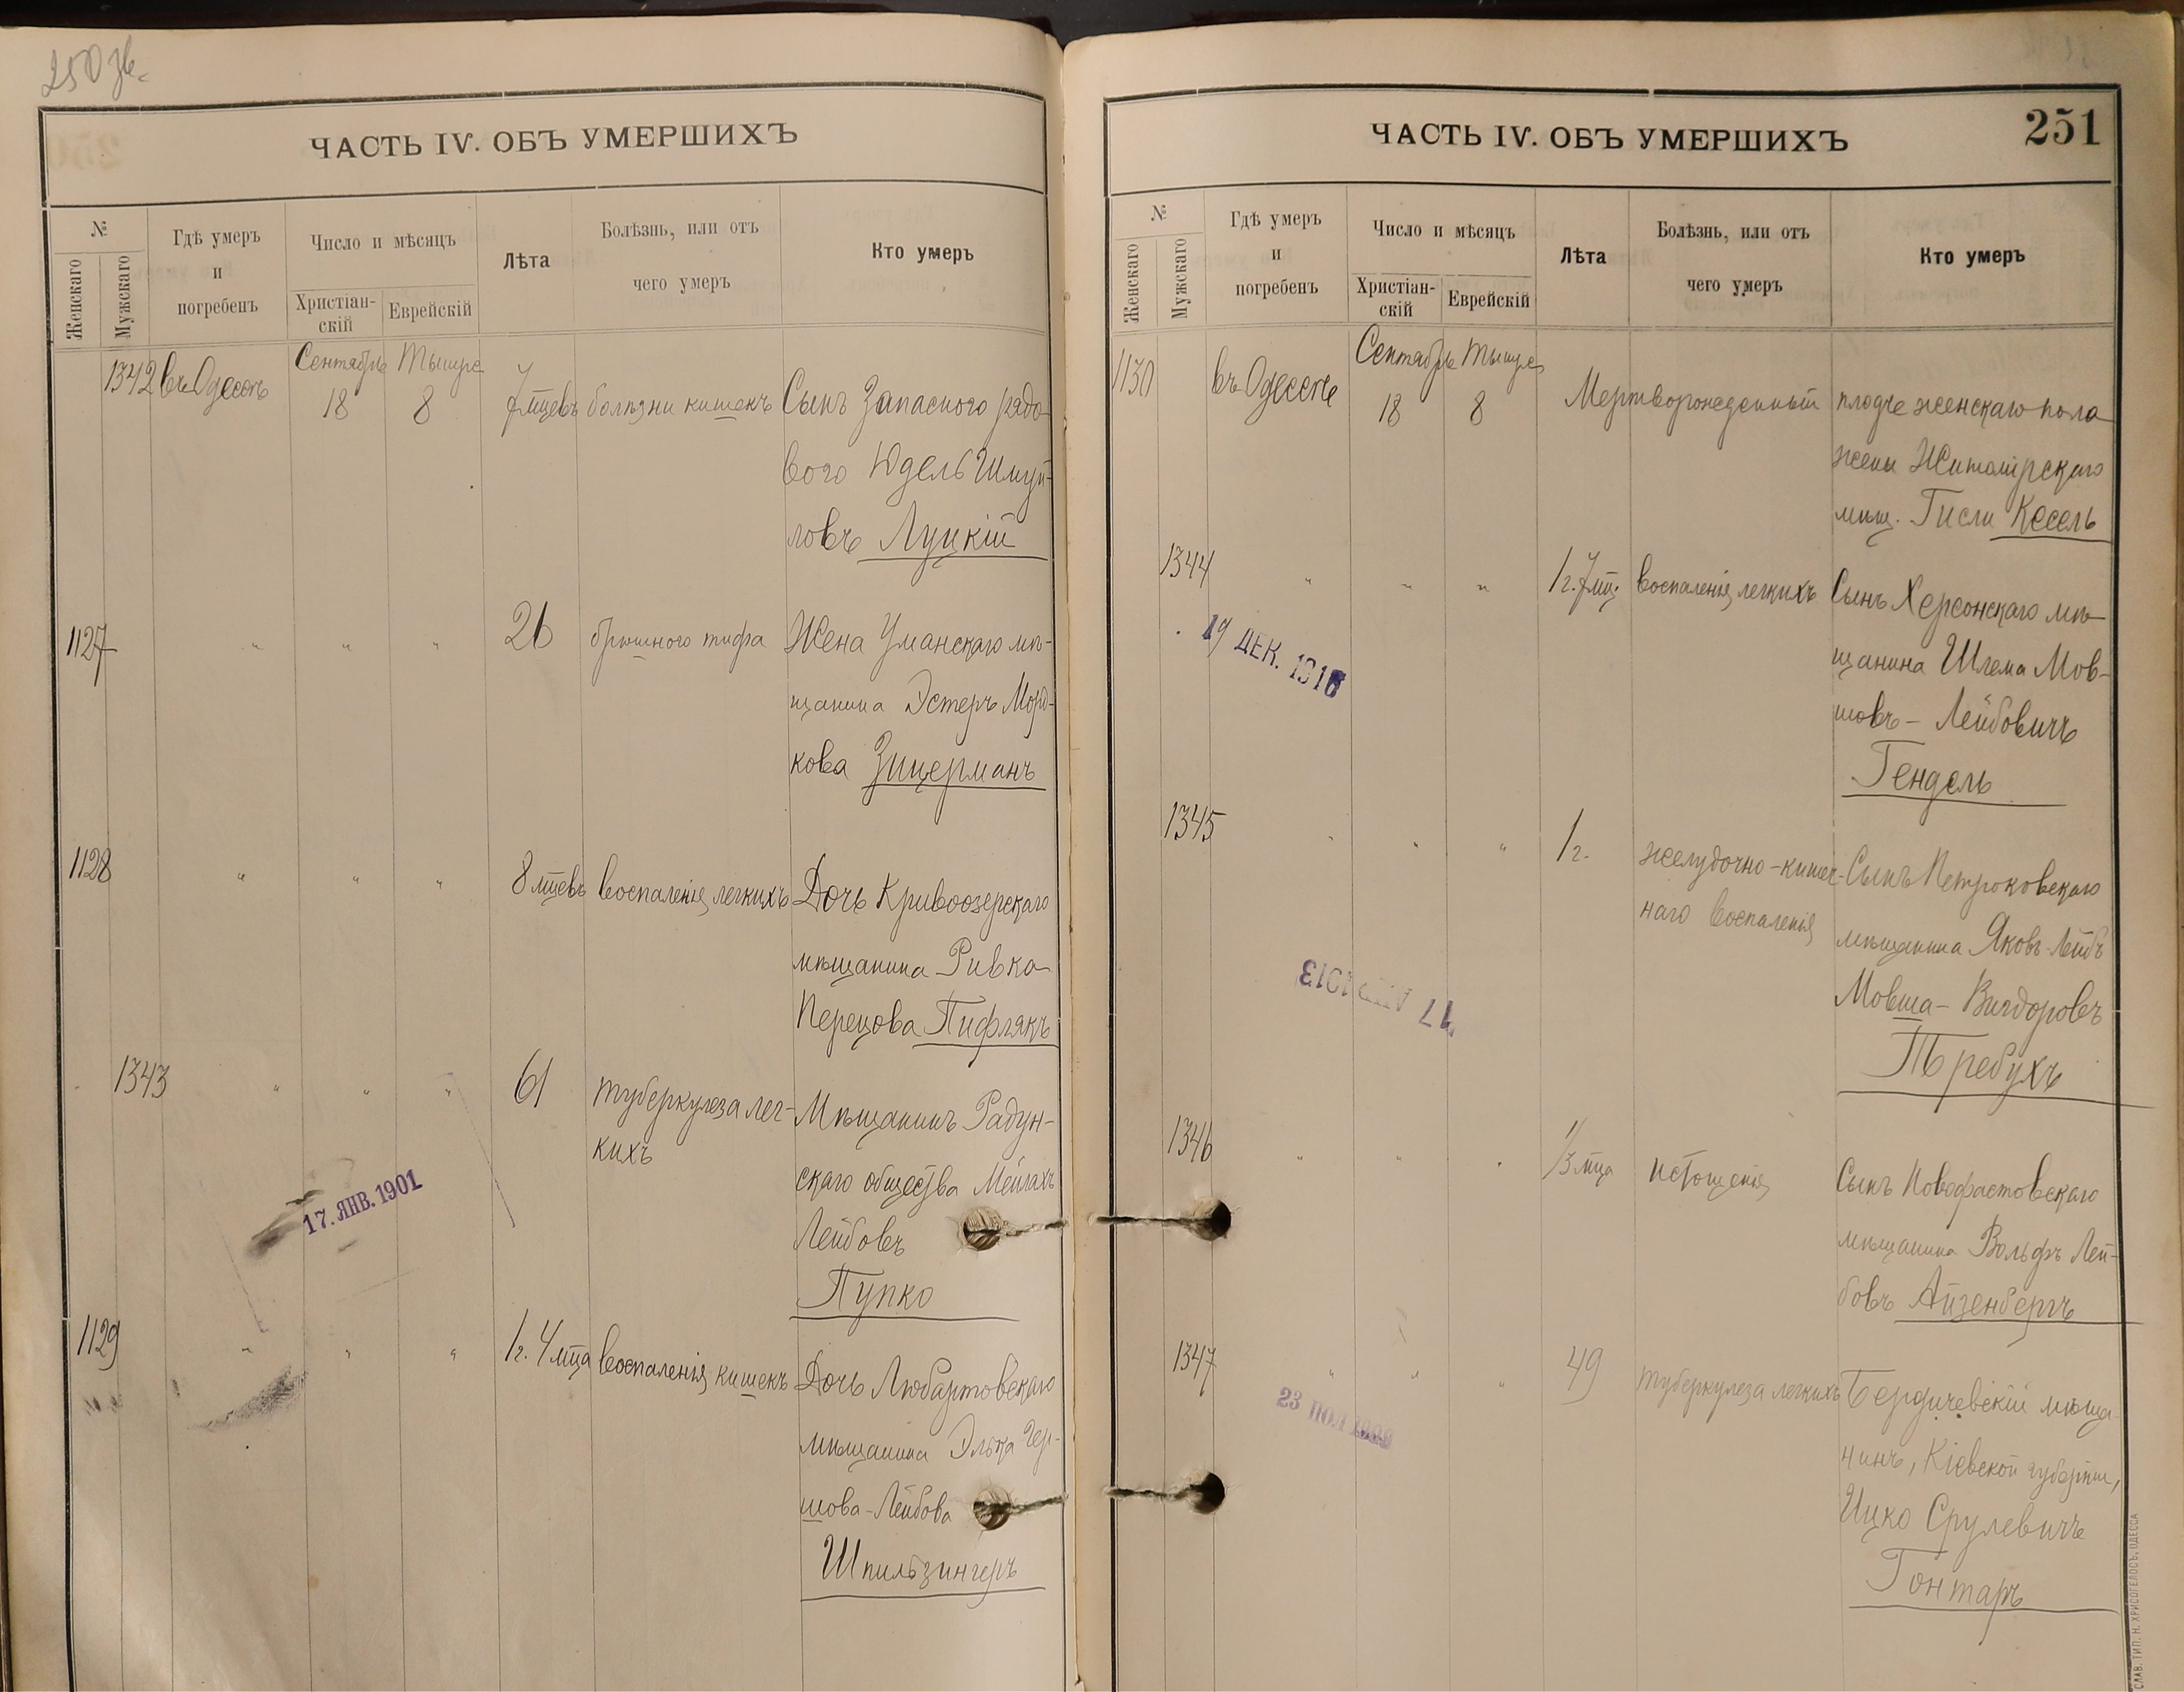 250 зв.
ЧАСТЬ IV. ОБЪ УМЕРШИХЪ
№
Женскаго
Мужскаго
Гдѣ умеръ
и
погребенъ
Число и мѣсяцъ
Христіан-
скій
Еврейскій
Лѣта
Болѣзнь, или отъ
чего умеръ
Кто умеръ
1342 въ Одессѣ Сентябрь 18 Тышре 8 7 мцевъ болѣзни кишекъ Сынъ Запасного рядо-
вого Юдель Шмуй-
ловъ Луцкій
1127 " " " 26 брюшного тифа Жена Уманскаго мѣ-
щанина Эстеръ Морд-
кова Зицерманъ
1128 " " " 8 мцевъ воспаленія легкихъ Дочь Кривоозерскаго
мѣщанина Ривка
Перецова Пифлякъ
1343 " " " 61 туберкулеза лег- Мѣщанинъ Радун-
кихъ скаго общества Мейлахъ
Лейбовъ
Пупко
17. ЯНВ. 1901
1129 " " " 1 г. 4 мца воспаленія кишекъ Дочь Любартовскаго
мѣщанина Элька Гер-
шова-Лейбова
Шпильзингеръ
ЧАСТЬ IV. ОБЪ УМЕРШИХЪ
251
№
Женскаго
Мужскаго
Гдѣ умеръ
и
погребенъ
Число и мѣсяцъ
Христіан-
скій
Еврейскій
Лѣта
Болѣзнь, или отъ
чего умеръ
Кто умеръ
1130 въ Одессѣ Сентябрь 18 Тышре 8 Мертворожденный плодъ женскаго пола
жены Житомірскаго
мѣщ. Гисли Кесель
1344 " " " 1 г. 7 мц. воспаленія легкихъ Сынъ Херсонскаго мѣ-
щанина Шлема Мов-
шовъ-Лейбовичъ
Гендель
19 ДЕК. 1916
1345 " " " 1 г. желудочно-кишеч- Сынъ Петроковскаго
наго воспаленія мѣщанина Яковъ-Лейбъ
Мовша-Вигдоровъ
Требухъ
17 АПР 1913
1346 " " " 1/3 мца истощенія Сынъ Новофастовскаго
мѣщанина Вольфъ Лей-
бовъ Айзенбергъ
1347 " " " 49 туберкулеза легкихъ Бердичевскій мѣща-
нинъ, Кіевской губерніи,
Ицко Срулевичъ
Гонтаръ
23
СЛАВ. ТИП. Н. ХРИСОГЕЛОСЪ, ОДЕССА